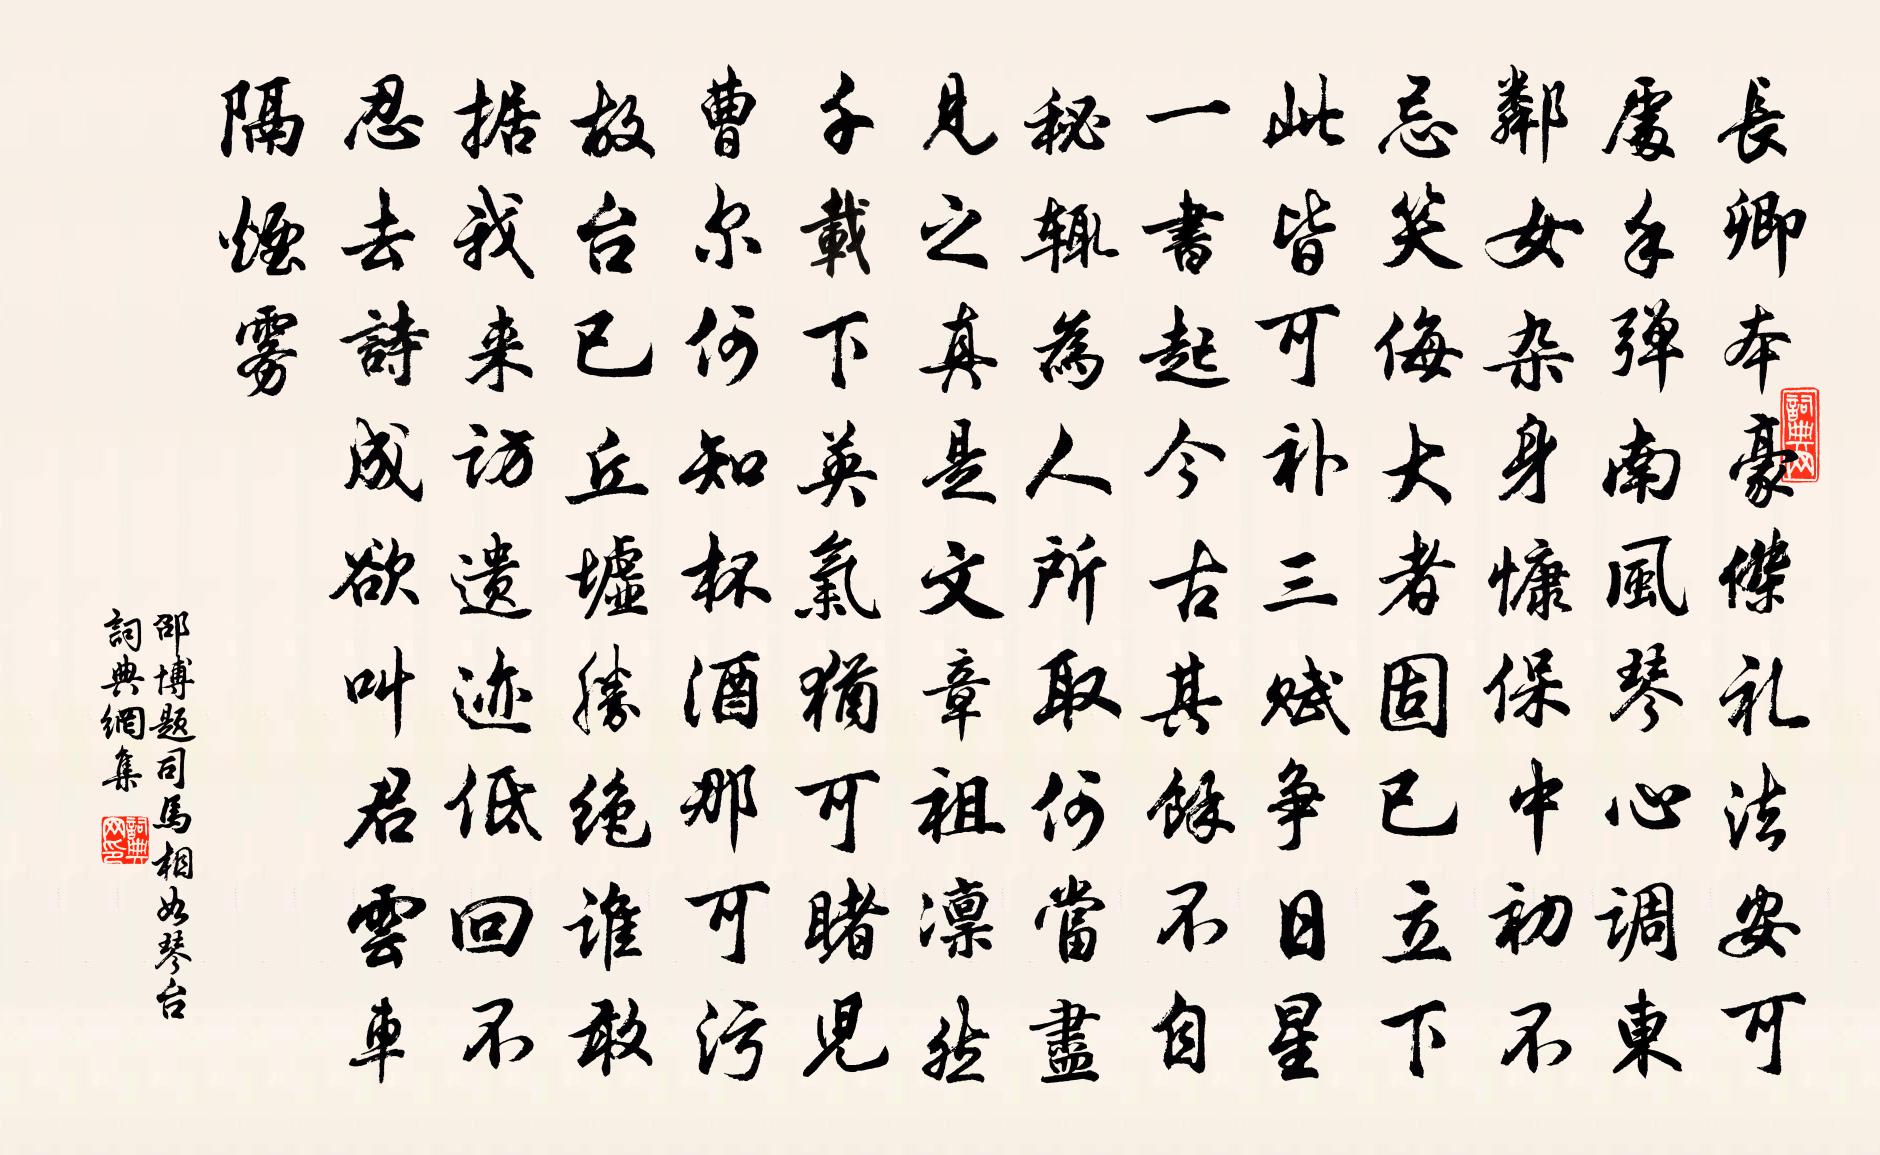 長卿本豪傑礼法安可
處手弹南風琴心调東
鄰女杂身慷保中初不
忌笑侮大者固已立下
此皆可补三赋争日星
一書起今古其餘不自
秘辄為人所取何當盡
見之真是文章祖凛然
千載下英氣猶可睹児
曹尔何知杯酒那可污
故台已丘墟勝绝谁敢
据我来访遗迹低回不
忍去詩成欲叫君雲車
隔煙雾
邵博题司馬相如琴台
詞典網集
詞典网
詞典网印